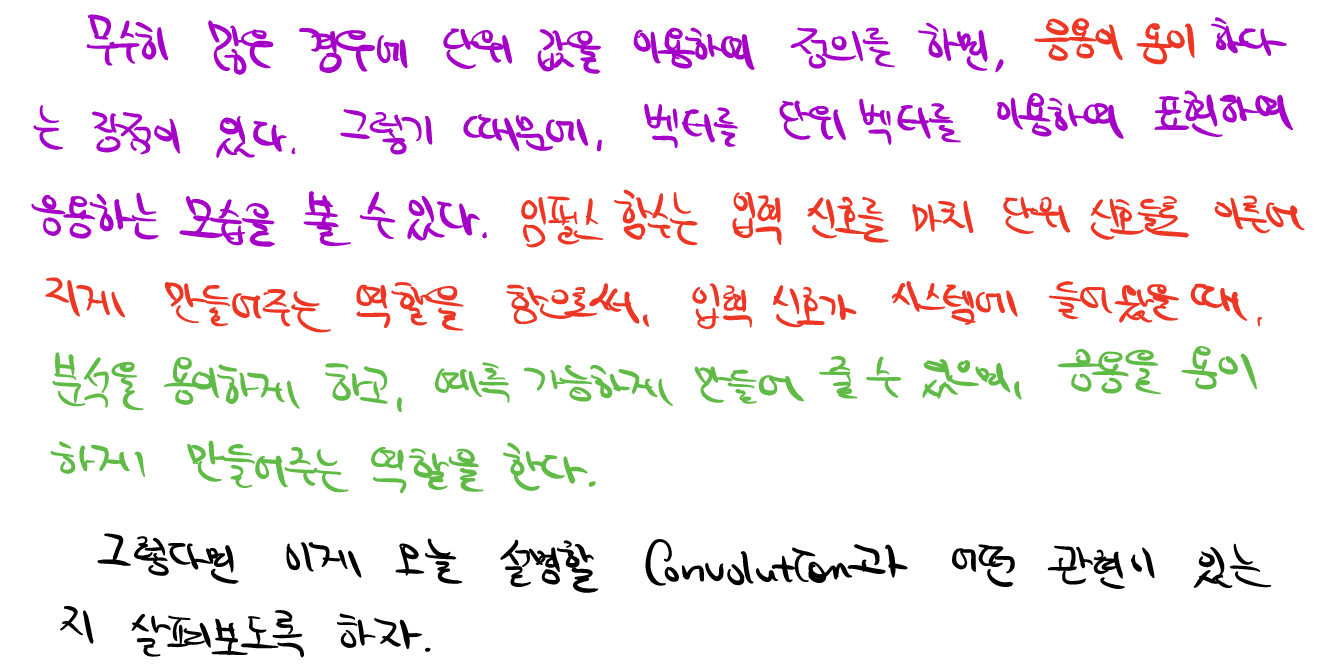 무수히 많은 경우에 단위 값을 이용하여 정의를 하면, 응용이 용이 하다
는 장점이 있다. 그렇기 때문에, 벡터를 단위 벡터를 이용하여 표현하여
응용하는 모습을 볼 수 있다. 임펄스 함수는 입력 신호를 마치 단위 신호들로 이루어
지게 만들어주는 역할을 함으로써, 입력 신호가 시스템에 들어왔을 때,
분석을 용이하게 하고, 예측 가능하게 만들어 줄 수 있으며, 응용을 용이
하게 만들어주는 역할을 한다.
그렇다면 이게 오늘 설명할 Convolution과 어떤 관련이 있는
지 살펴보도록 하자.